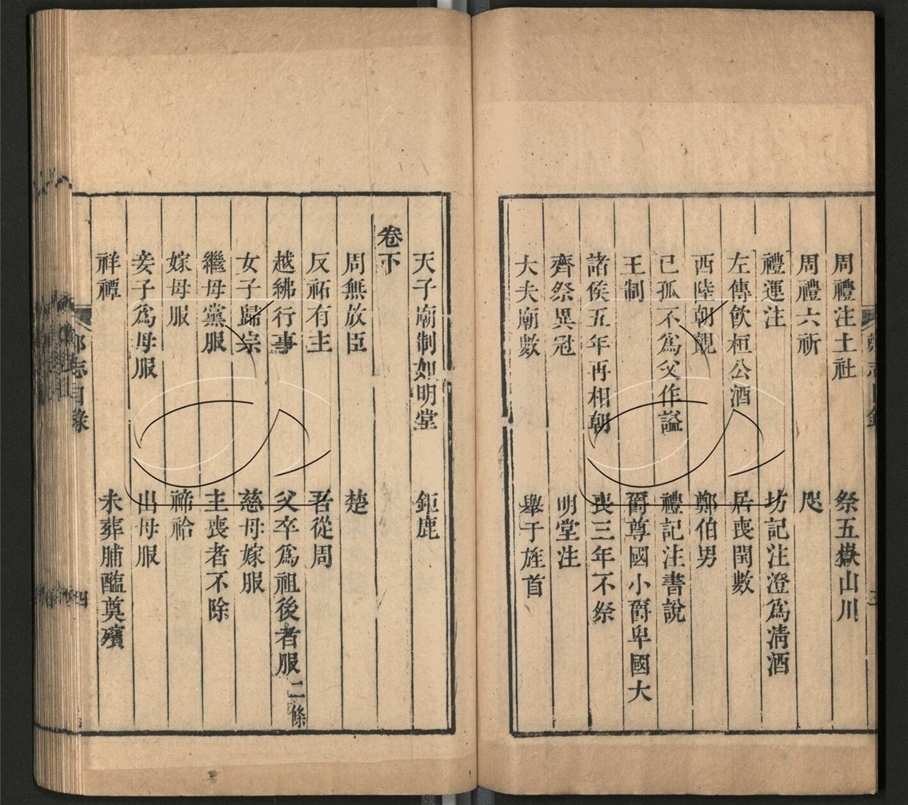 周禮注土社 祭五嶽山川
周禮六祈 咫
禮運注 坊記注澄爲清酒
左傳飲桓公酒 居喪閏數
西陸朝覿 鄭伯男
已孤不爲父作謚 禮記注書說
王制 爵尊國小爵卑國大
諸侯五年再相朝 喪三年不祭
齊祭異冠 明堂注
大夫廟數 舉于旌首
天子廟制如明堂 鉅鹿
卷下
周無放臣 楚
反祏有主 吾從周
越紼行事 父卒爲祖後者服二條
女子歸宗 慈母嫁服
繼母黨服 主喪者不除
嫁母服 禘祫
妾子爲母服 出母服
祥禫 未葬脯醢奠殯
鄭志目錄 四